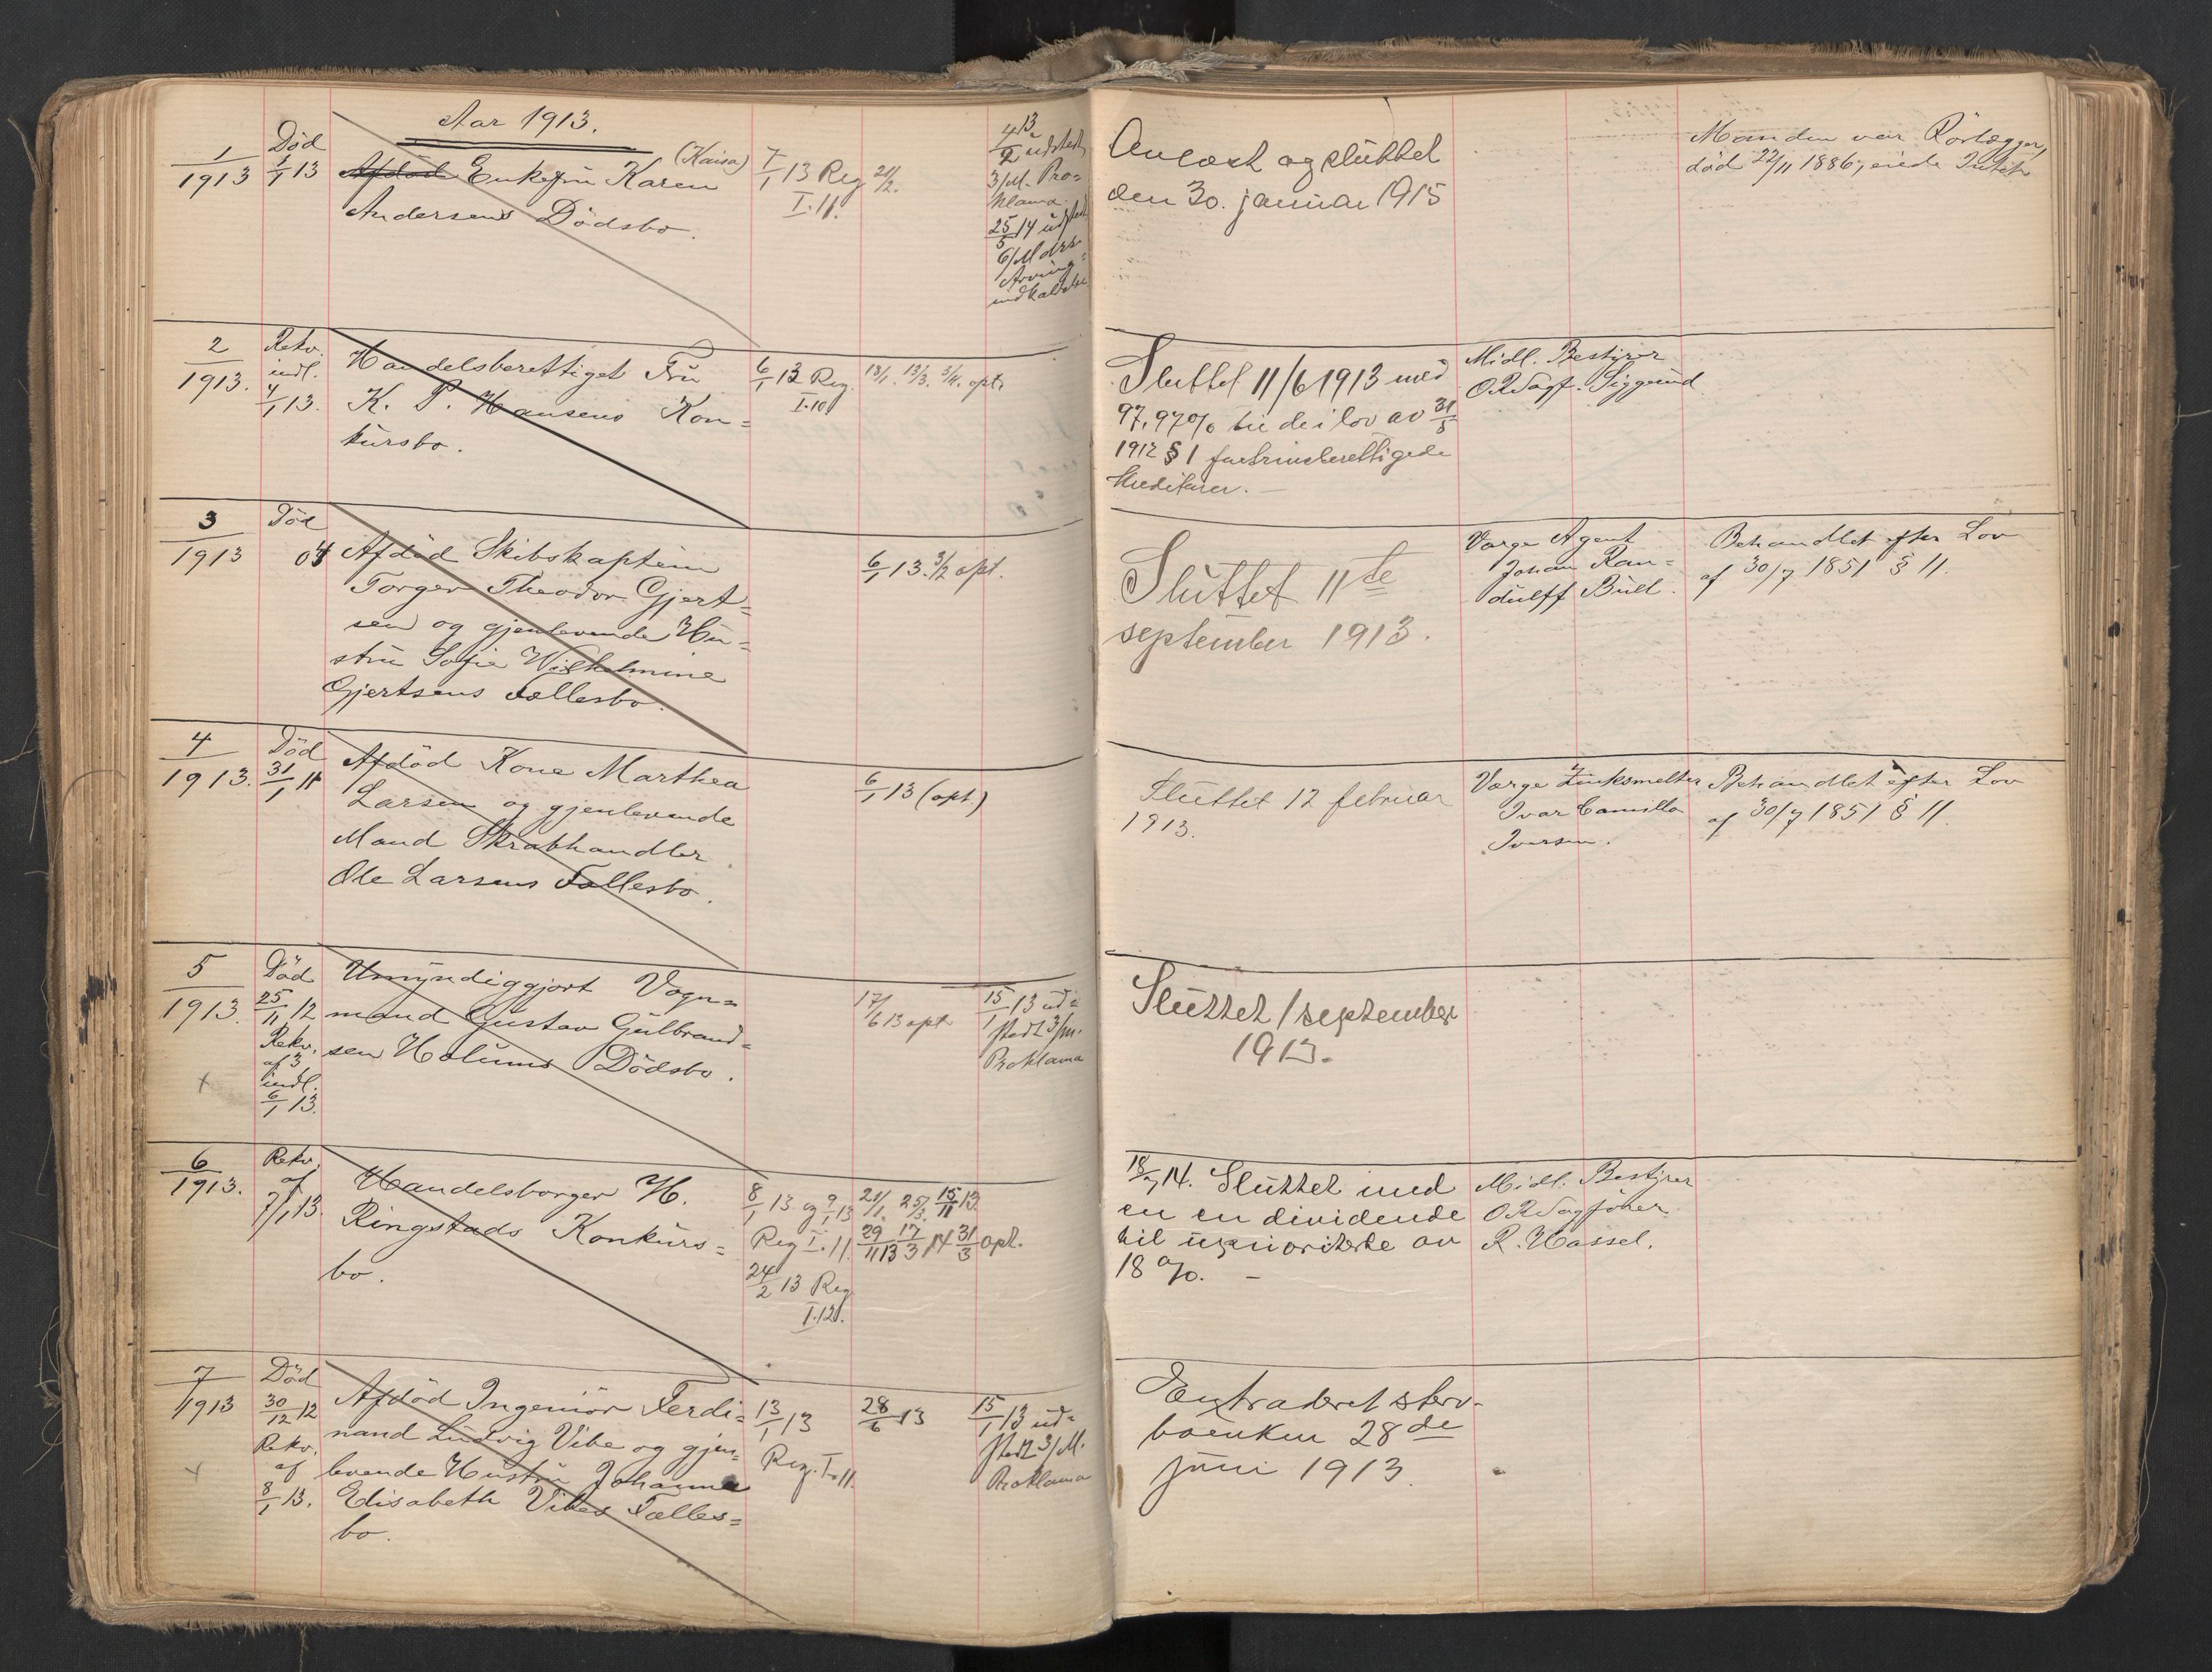 Aar 1913.
1/1913
Død
1/1 13
(Kaisa)
Afdød Enkefru Karen
Andersens Dödsbo.
7/1 13 Reg
I.11.
21/2.
13
4/2 udstedt
3/M. Pro=
klama.
25/5 14 udstedt
6/M
Arving=
indkaldelse
Avlæst og sluttet
den 30. januar 1915
Manden var Rörlægger,
död 22/11 1886;
2/1913.
Rekv.
indl.
4/1 13.
Handelsberettiget Fru
K. P. Hansens Kon=
kursbo.
6/1 13 Reg.
I.10
18/1. 13/3. 3/4. opt.
Sluttet 11/6 1913 med
97,97% til de i lov av 31/5
1912 § 1 fortrinsberettigede
kreditorer. —
Midl. Bestyrer
O.R.Sagf. Siggerud
3/1913
Död
04
Afdöd Skibskaptein
Torger Theodor Gjert=
sen og gjenlevende Hu=
stru Sofie Wilhelmine
Gjertsens Fællesbo.
6/1 13. 3/2 opt.
Sluttet 11te
september 1913.
Værge Agent
Johan Ran=
dulff Bull.
Behandlet efter Lov
af 30/7 1851 § 11.
4/1913.
Död
31/1 11
Afdöd Kone Marthea
Larsen og gjenlevende
Mand Skrabhandler
Ole Larsens Fællesbo.
6/1 13 (opt)
Sluttet 12 februar
1913.
Værge Zinksmelter
Ivar Camillo
Iversen.
Behandlet efter Lov
af 30/7 1851 § 11.
5/1913.
Död
25/11 12
Rekv.
af 3
indl.
6/1 13.
Umyndiggjort Vogn=
mand Gustav Gulbrand=
sen Holums Dödsbo.
17/6 13 opt
15/1 13 ud=
stedt 3/m.
Proklama
Sluttet 1 september
1913.
6/1913.
Rekv.
af
7/1 13.
Handelsborger H.
Ringstads Konkurs=
bo.
8/1 13 og 9/1 13
Reg I.11.
24/2 13 Reg
I.12.
21/1. 25/3. 15/11 13.
29/11 13 17/3 14 31/3 opt.
18/7 14. Sluttet med
en en dividende
til uprioriterte av
18 %. —
Midl. Bestyrer
O.R.Sagförer
R. Hassel.
7/1913
Död
30/12 12
Rekv.
af
8/1 13.
Afdöd Ingeniör Ferdi=
nand Ludvig Vibe og gjen=
levende Hustru Johanne
Elisabeth Vibes Fælles=
bo.
13/1 13
Reg. I.11.
28/6 13
15/1 13 ud=
stedt 3/M.
Proklama
Extraderet sterv-
boenken 28de
juni 1913.